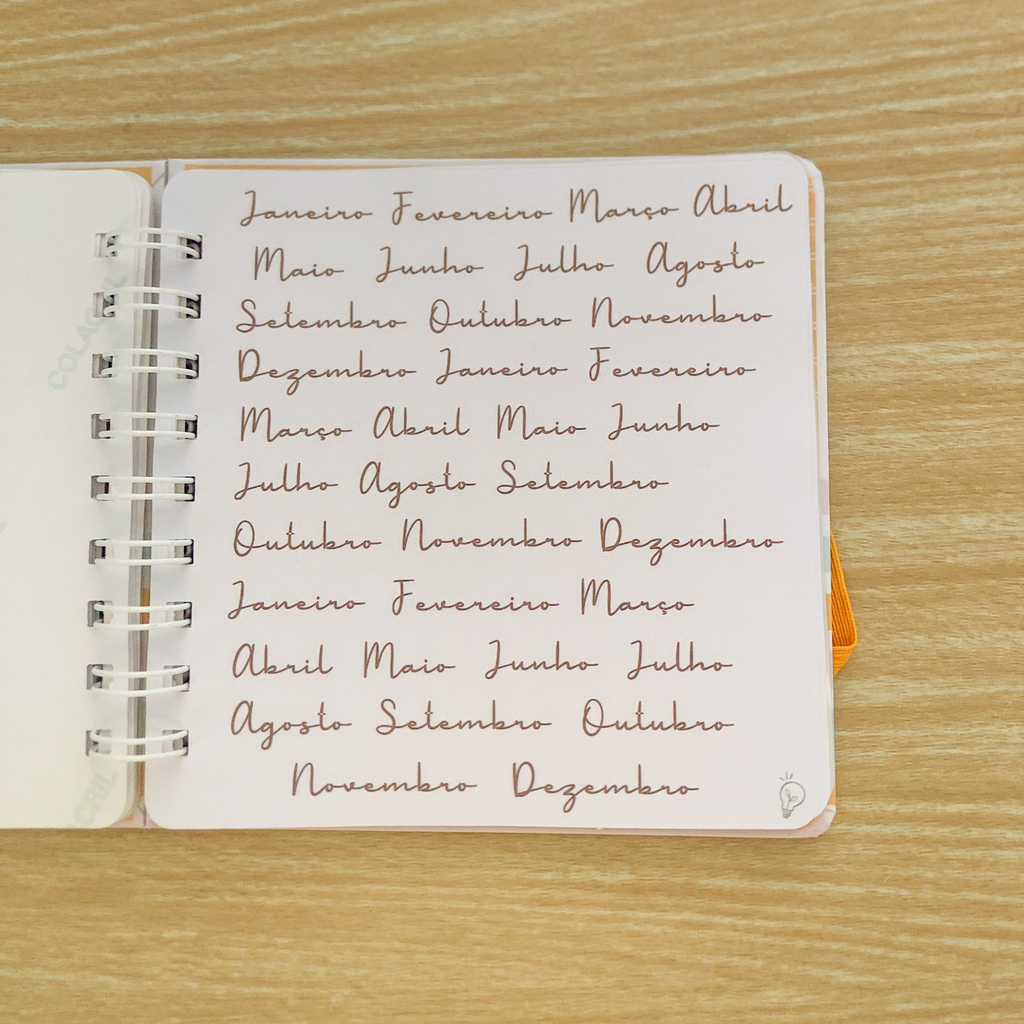 Janeiro Fevereiro Março Abril
Maio Junho Julho Agosto
Setembro Outubro Novembro
Dezembro Janeiro Fevereiro
Março Abril Maio Junho
Julho Agosto Setembro
Outubro Novembro Dezembro
Janeiro Fevereiro Março
Abril Maio Junho Julho
Agosto Setembro Outubro
Novembro Dezembro